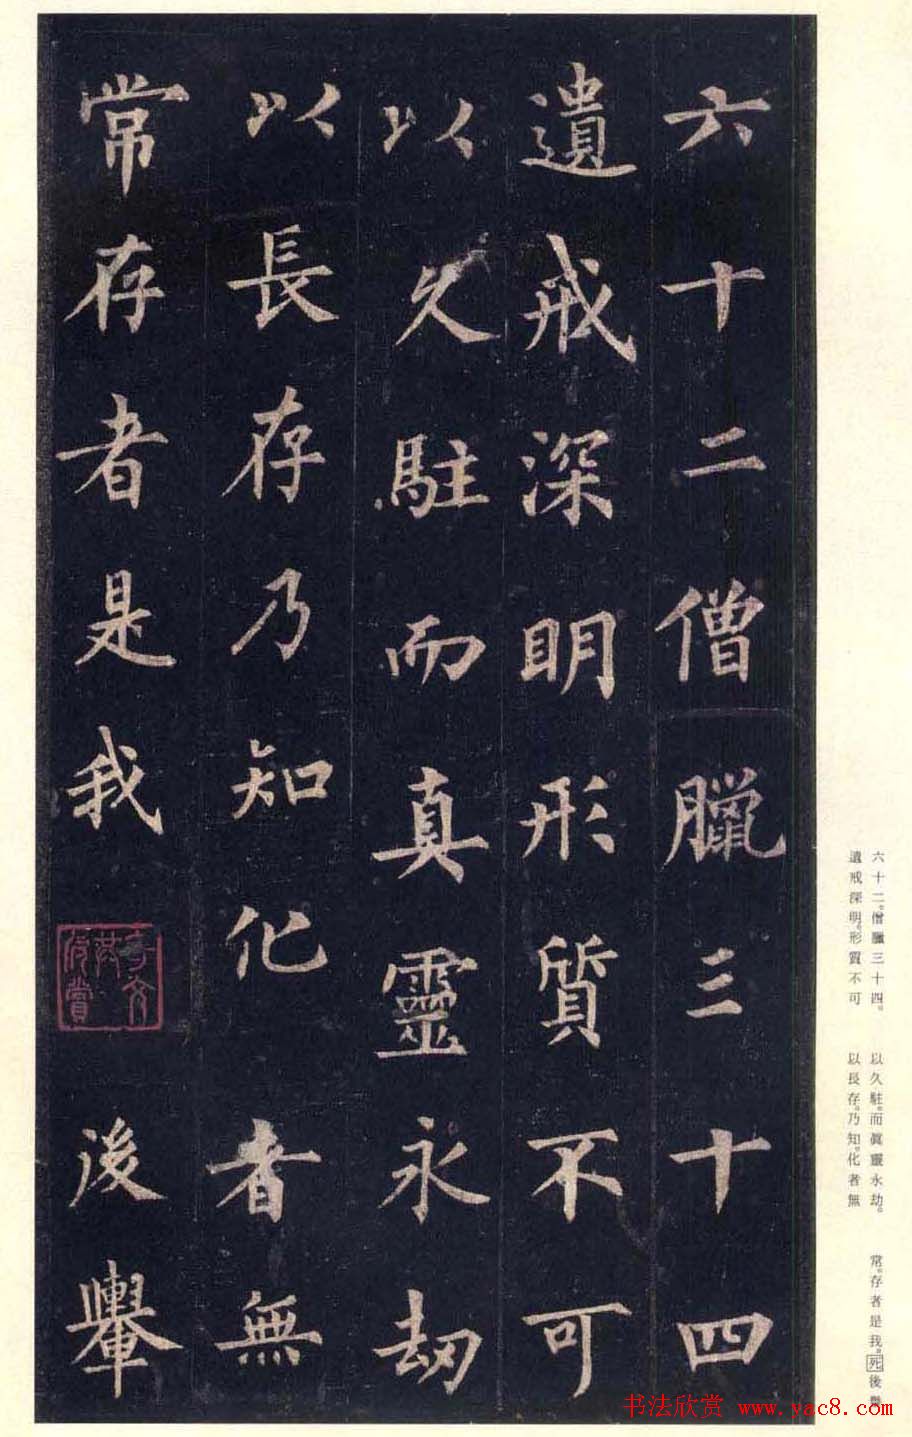 六十二僧臘三十四
遺戒深明形質不可
以久駐而真靈永劫
以長存乃知化者無
常存者是我後轝
六十二。僧臘三十四。
遺戒深明。形質不可
以久駐。而眞靈永劫。
以長存。乃知。化者無
常。存者是我。死後轝
书法欣赏 www.yac8.com